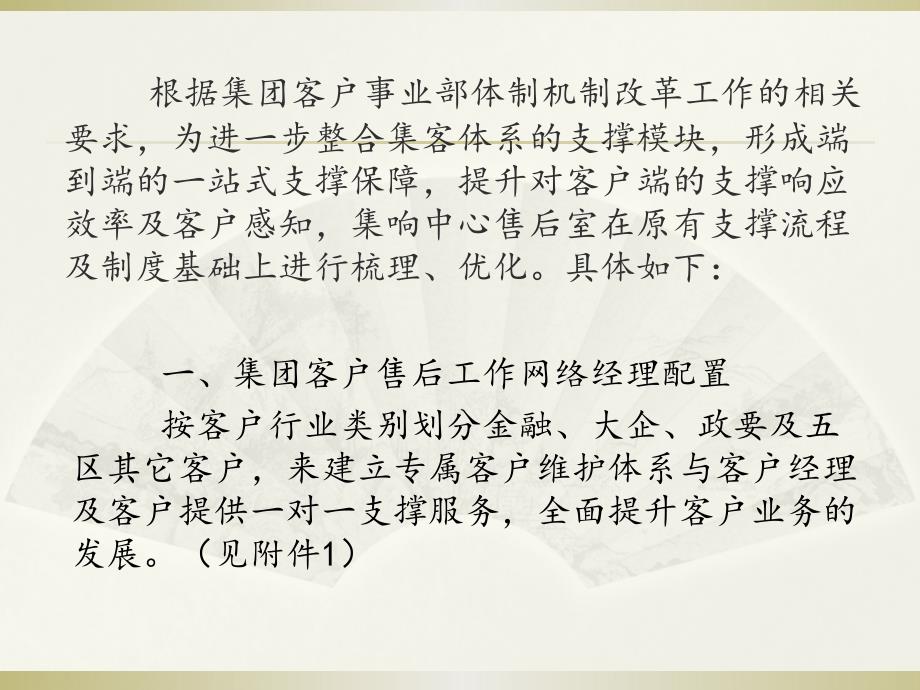 根据集团客户事业部体制机制改革工作的相关
要求，为进一步整合集客体系的支撑模块，形成端
到端的一站式支撑保障，提升对客户端的支撑响应
效率及客户感知，集响中心售后室在原有支撑流程
及制度基础上进行梳理、优化。具体如下：
一、集团客户售后工作网络经理配置
按客户行业类别划分金融、大企、政要及五
区其它客户，来建立专属客户维护体系与客户经理
及客户提供一对一支撑服务，全面提升客户业务的
发展。（见附件1）